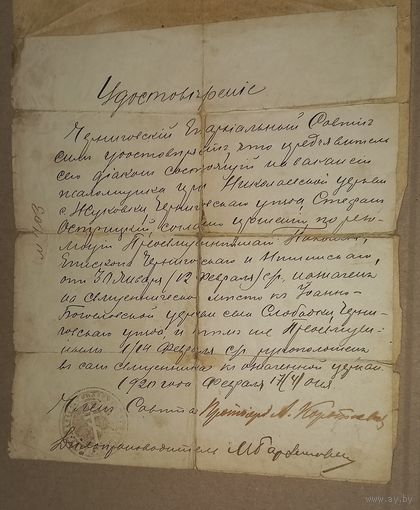 Удостовѣреніе
Черниговскій Епархіальный Совѣтъ
симъ удостовѣряетъ что предъявитель
сего діаконъ состоящій на вакансіи
псаломщика при Николаевской церкви
с. Жуковки Черниговскаго уѣзда Стефанъ
согласно прошенію, по резо-
люціи Преосвященнѣйшаго Пахомія,
Епископа Черниговскаго и Нѣжинскаго,
отъ 30 Января /12 Февраля/ с/г. назначенъ
на священническое мѣсто къ Іоанно-
Богословской церкви села Слободки Черни-
говскаго уѣзда и тѣмъ же Преосвящен-
нымъ 1/14 Февраля с/г рукоположенъ
въ санъ священника къ означенной церкви.
1920 года Февраля 17/4/ дня
Членъ Совѣта Протоіерей А.
Дѣлопроизводитель
№ 1103
www.ay.by